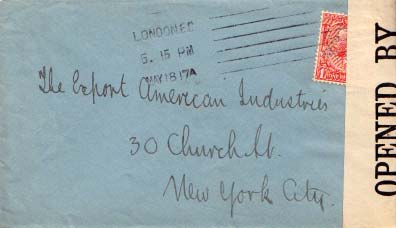 LONDON E.C
5. 15 PM
MAY 18 17A
The Export American Industries
30 Church St.
New York City.
OPENED BY